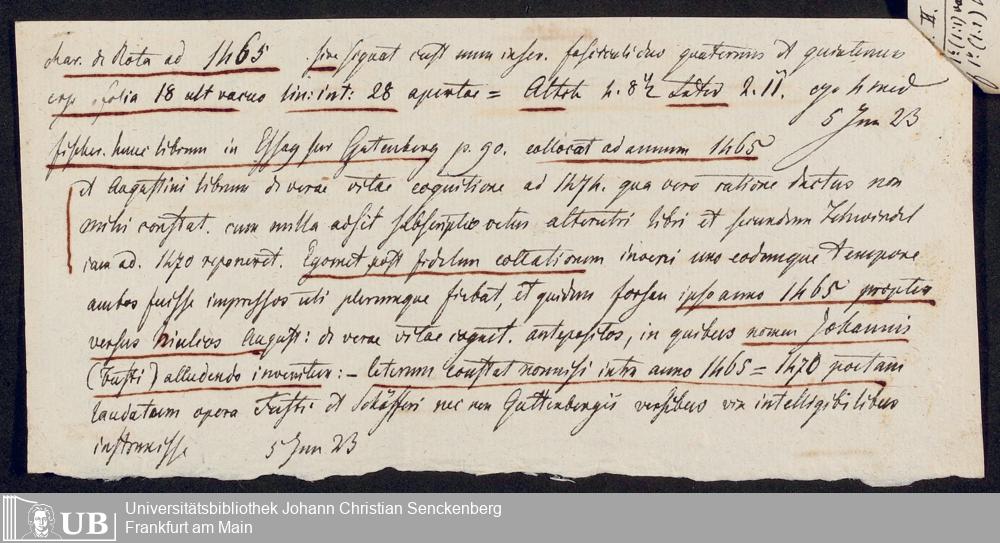 char. de Rota ad 1465 sine signat cust num inser. fasciculi duo quaternus et quinternus
exp. folia 18 ult vacuo lin: int: 28 apertae = Altit 2.
5 Jun 23
fischer. hunc librum in Essay sur Gutenberg p. 90. collocat ad annum 1465
et Augustini librum de verae vitae cognitione ad 1474. qua vero ratione ductus non
mihi constat. cum nulla adsit subscriptio vetus alterutri libri et secundum
eam ad. 1470 reponeret. Egomet post fidelem collationem inveni uno eodemque tempore
ambos fuisse impressos uti plerumque fiebat, et quidem forsan ipso anno 1465 propter
versus August: de verae vitae cognit. antepositos, in quibus nomen Johannis
(Fusti) alludendo invenitur: – ceterum constat nonnisi intra anno 1465 = 1470 poetam
laudatam opera Fusti et Schöffiri nec non Guttenbergii versibus vix intelligibilibus
instruxisse 5 Jun 23
Universitätsbibliothek Johann Christian Senckenberg
Frankfurt am Main
UB